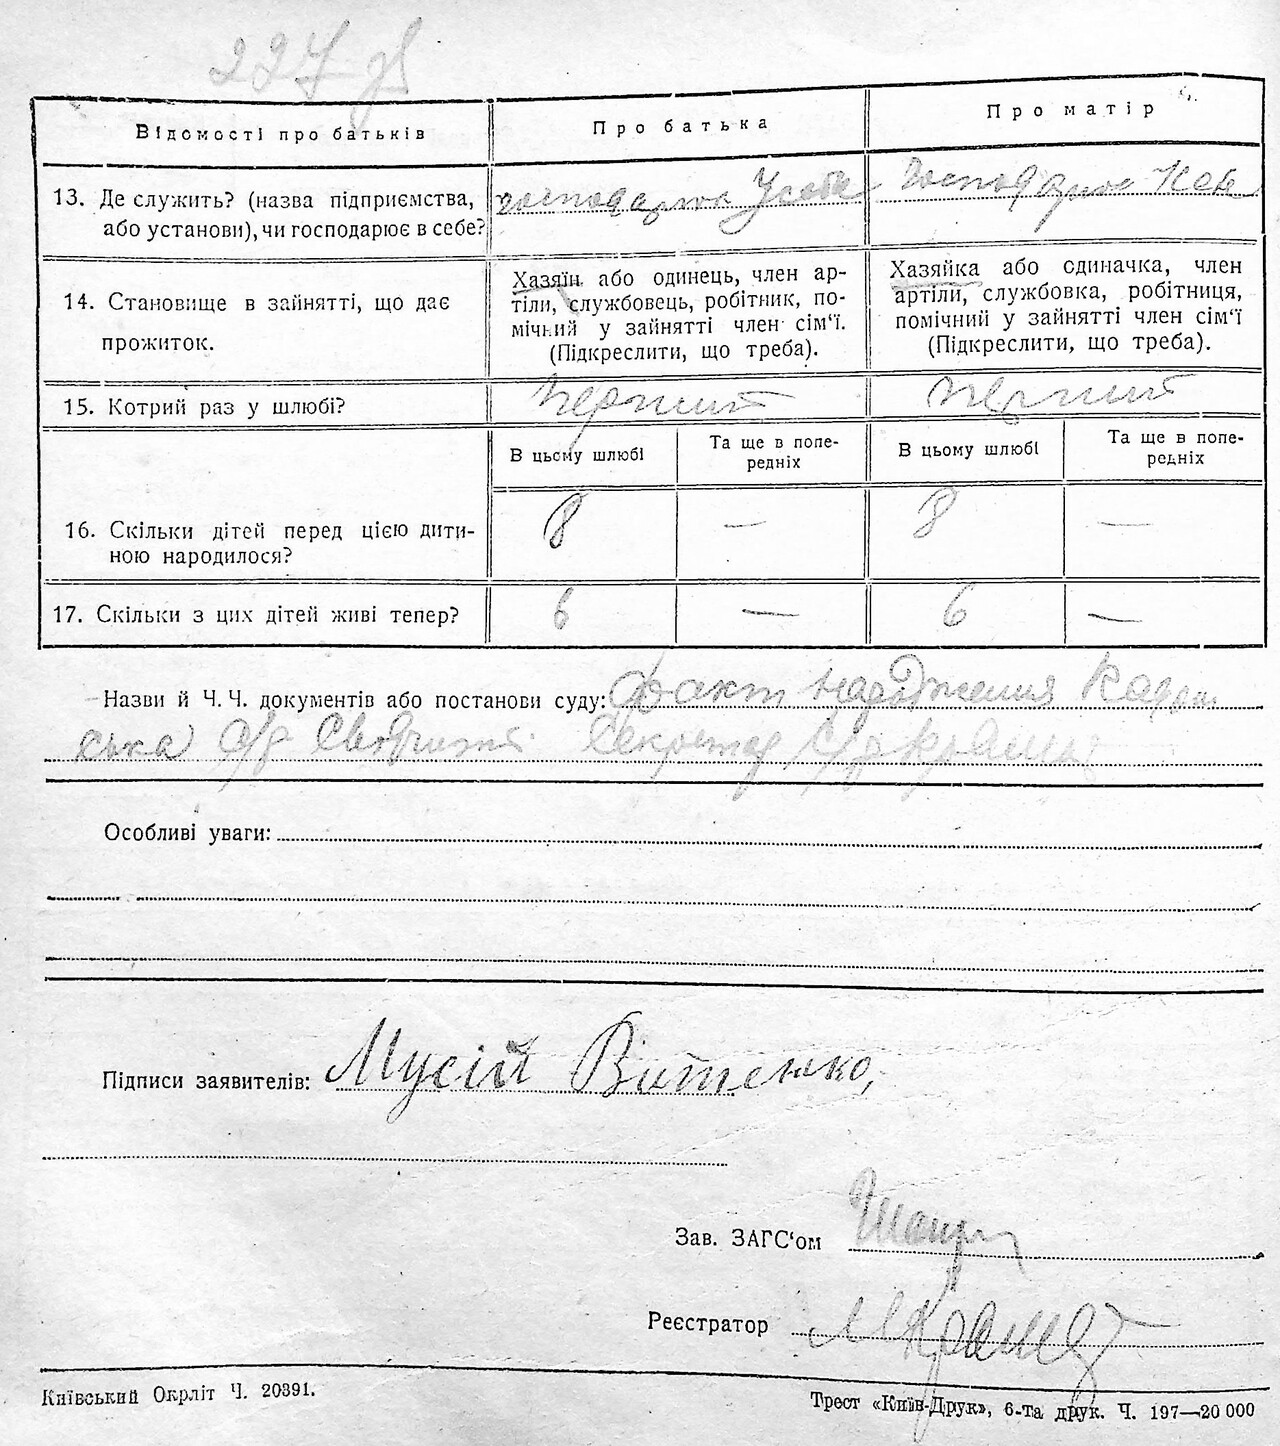 227 зв
Відомості про батьків
Про батька
Про матір
13. Де служить? (назва підприємства,
або установи), чи господарює в себе?
господарює Усебе
господарює
14. Становище в зайнятті, що дає
прожиток.
Хазяїн або одинець, член ар-
тіли, службовець, робітник, по-
мічний у зайнятті член сім'ї.
(Підкреслити, що треба).
Хазяйка або одиначка, член
артіли, службовка, робітниця,
помічний у зайнятті член сім'ї
(Підкреслити, що треба).
15. Котрий раз у шлюбі?
перший
перший
В цьому шлюбі
Та ще в попе-
редніх
В цьому шлюбі
Та ще в попе-
редніх
16. Скільки дітей перед цією дити-
ною народилося?
8 — 8 —
17. Скільки з цих дітей живі тепер?
6 — 6 —
Назви й Ч. Ч. документів або постанови суду: Факт народження
ська с/р Секретар с/р
Особливі уваги:
Підписи заявителів: Мусій Витенко,
Зав. ЗАГС'ом
Реєстратор
Київський Окрліт Ч. 20391.
Трест «Київ-Друк», 6-та друк. Ч. 197—20 000